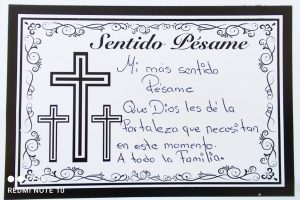 Sentido Pésame
Mi más sentido
Pésame
Que Dios les dé la
fortaleza que necesitan
en este momento.
A todo la Familia.
REDMI NOTE 10